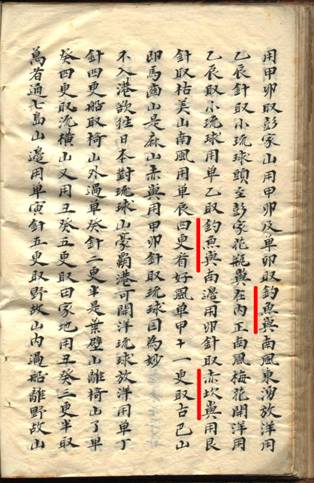 用甲卯取彭家山用甲卯及單卯取釣魚嶼南風東湧放洋用
乙辰針取小琉球頭至彭家花瓶嶼在内正南風梅花開洋用
乙辰取小琉球用單乙取釣魚嶼南邊用卯針取赤坎嶼用艮
針取枯美山南風用單辰四更看好風單甲十一更取古巴山
即馬齒山是麻山赤嶼用甲卯針取琉球國為妙
不入港欲往日本對琉球山豪霸港可開洋琉球放洋用單丁
針四更船取椅山外過單癸針二更半是葉壁山離椅山了單
癸四更取流横山又用丑癸五更取田家地用丑癸三更半取
萬者通七島山邊用單寅針五更取野故山内過船離野故山